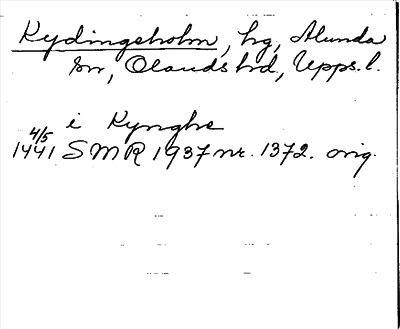 Rydingsholm, hg, Alunda
sn, Olands hd, Upps. l.
i Rynghe
4/5
1441 SMR 1937 nr. 1372. orig.